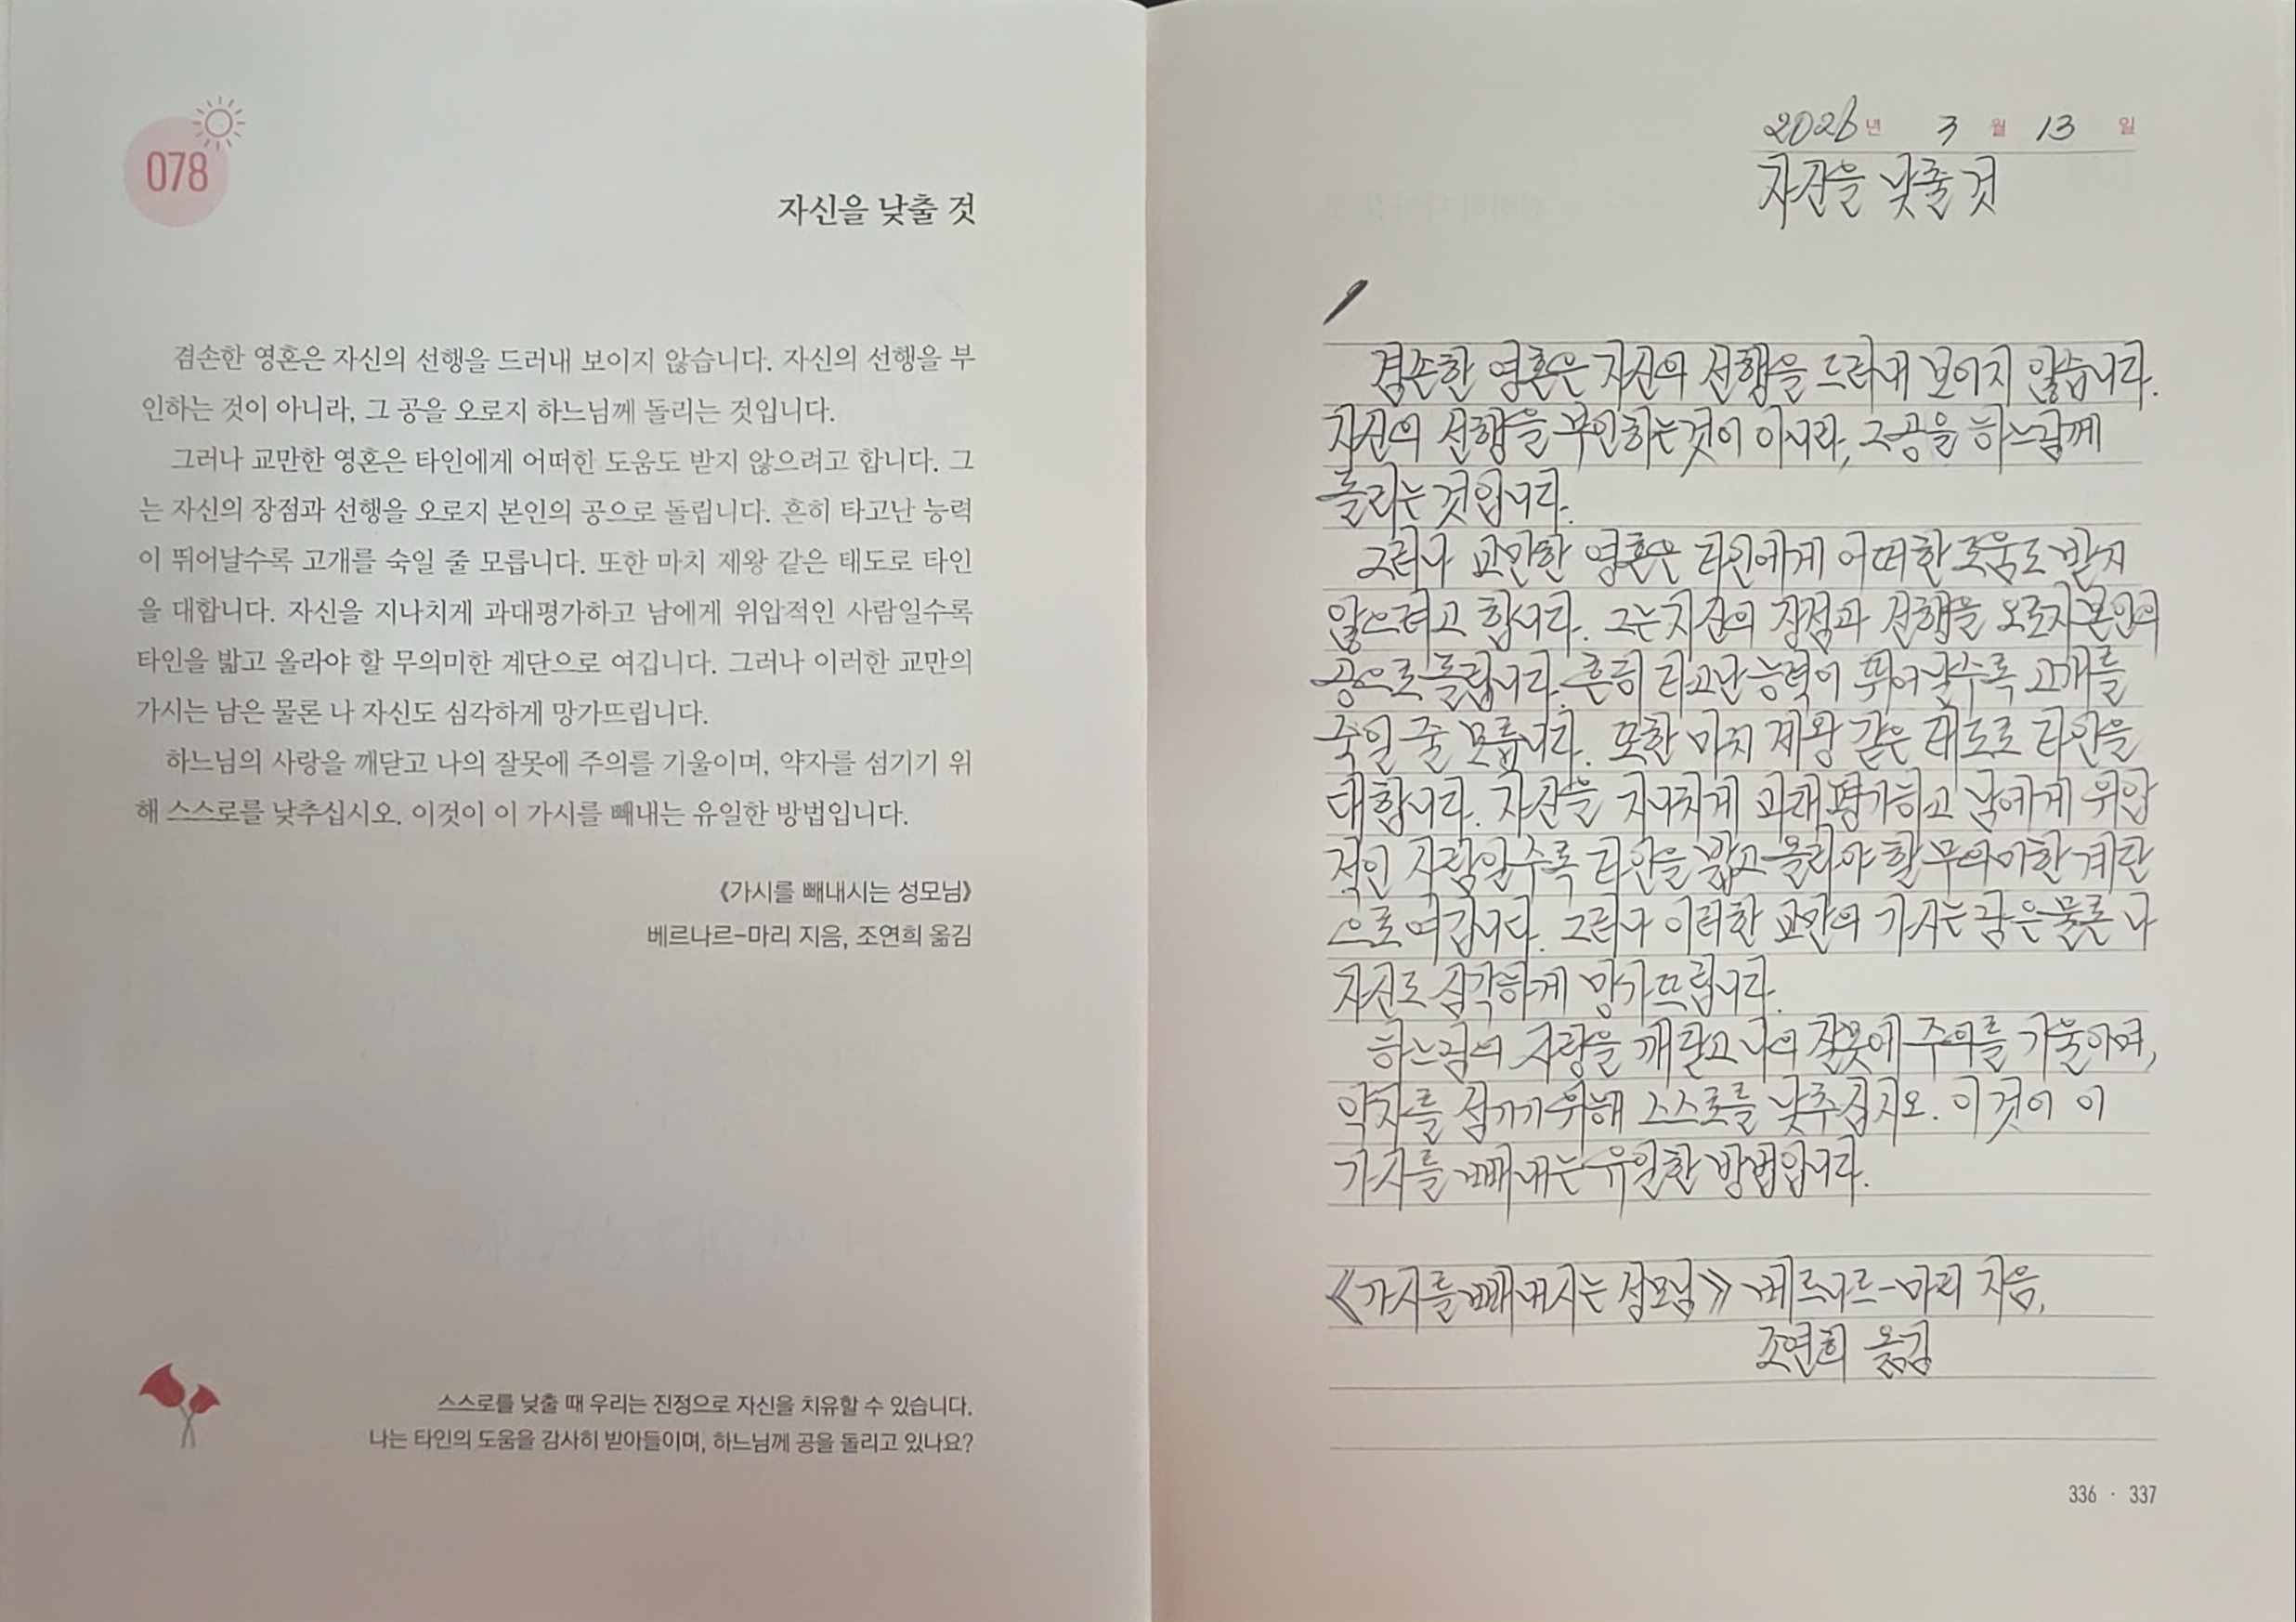 078
자신을 낮출 것
겸손한 영혼은 자신의 선행을 드러내 보이지 않습니다. 자신의 선행을 부
인하는 것이 아니라, 그 공을 오로지 하느님께 돌리는 것입니다.
그러나 교만한 영혼은 타인에게 어떠한 도움도 받지 않으려고 합니다. 그
는 자신의 장점과 선행을 오로지 본인의 공으로 돌립니다. 흔히 타고난 능력
이 뛰어날수록 고개를 숙일 줄 모릅니다. 또한 마치 제왕 같은 태도로 타인
을 대합니다. 자신을 지나치게 과대평가하고 남에게 위압적인 사람일수록
타인을 밟고 올라야 할 무의미한 계단으로 여깁니다. 그러나 이러한 교만의
가시는 남은 물론 나 자신도 심각하게 망가뜨립니다.
하느님의 사랑을 깨닫고 나의 잘못에 주의를 기울이며, 약자를 섬기기 위
해 스스로를 낮추십시오. 이것이 이 가시를 빼내는 유일한 방법입니다.
《가시를 빼내시는 성모님》
베르나르-마리 지음, 조연희 옮김
스스로를 낮출 때 우리는 진정으로 자신을 치유할 수 있습니다.
나는 타인의 도움을 감사히 받아들이며, 하느님께 공을 돌리고 있나요?
2026년 3월 13일
자신을 낮출 것
겸손한 영혼은 자신의 선행을 드러내 보이지 않습니다.
자신의 선행을 부인하는것이 아니라, 그공을 하느님께
돌리는 것입니다.
그러나 교만한 영혼은 타인에게 어떠한 도움도 받지
않으려고 합니다. 그는 자신의 장점과 선행을 오로지 본인의
공으로 돌립니다. 흔히 타고난 능력이 뛰어날수록 고개를
숙일 줄 모릅니다. 또한 마치 제왕 같은 태도로 타인을
대합니다. 자신을 지나치게 과대평가하고 남에게 위압
적인 사람일수록 타인을 밟고 올라야 할 무의미한 계단
으로 여깁니다. 그러나 이러한 교만의 가시는 남은 물론 나
자신도 심각하게 망가뜨립니다.
하느님의 사랑을 깨닫고 나의 잘못에 주의를 기울이며,
약자를 섬기기 위해 스스로를 낮추십시오. 이것이 이
가시를 빼내는 유일한 방법입니다.
《가시를 빼내시는 성모님》 베르나르-마리 지음,
조연희 옮김
336 · 337